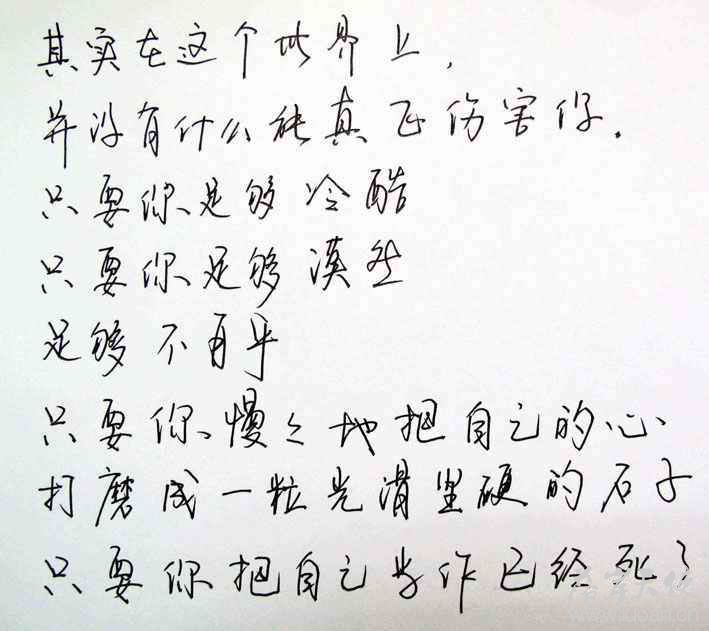 其实在这个世界上，
并没有什么能真正伤害你.
只要你足够冷酷
只要你足够漠然
足够不再乎
只要你慢々地把自己的心
打磨成一粒光滑坚硬的石子
只要你把自己当作已经死了